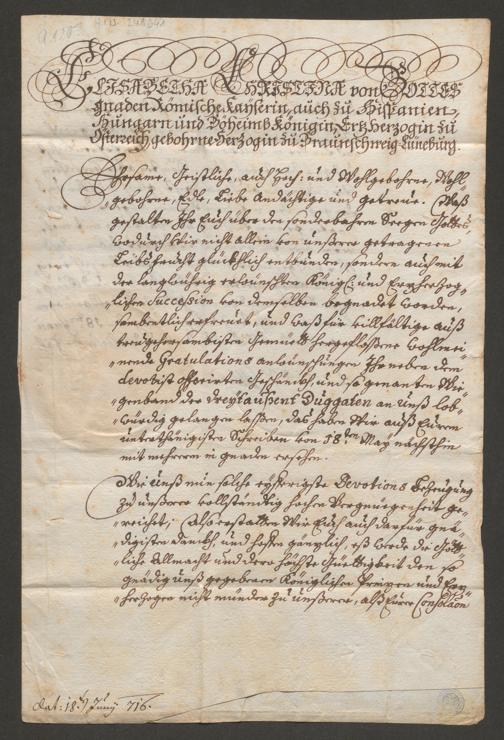 ELISABETHA CHRISTINA von GOTTES
gnaden Römische Kayserin, auch zu Hispanien,
Hungarn und Böheimb Königin, Ertzherzogin zu
Österreich, gebohrne Herzogin zu Braunschweig Lüneburg.
Ehrsame, Geistliche, auch Hoch: und Wohlgebohrne, Wohl-
gebohrne, Edle, Liebe Andächtige und getreue. Was
gestalten Ihr Euch über den sonderbahren Seegen Gottes,
wodurch Wir nicht allein von unserer getragenen
Leibsfrucht glücklich entbunden, sondern auch mit
der langwührig erwünschten Königl: und Ertzherzog-
lichen Succession von demselben begnadet worden,
sambentlich erfreuet, und was für villfältige auß
treugehorsambisten Gemüeth hergeflossene wohlmei-
nende Gratulations anwünschungen Ihr neben dem
devotist offerirten Geschänckh, und so genanten Wie-
genband der dreytausent Duggaten an Unß lob-
würdig gelangen lassen, das haben Wir auß Eurem
unterthänigisten Schreiben von 18ten May nächsthin
mit mehreren in gnaden ersehen.
Wie Unß nun solche eyfferigste Devotions Bezeugung
zu unserer vollständig hochen Vergnuegenheit ge-
reichet; Also erstatten Wir Euch auch darfür gnä-
digisten Danckh, und hoffen gänzlich, es werde die Gött-
liche Allmacht und dero höchste Güettigkeit den so
gnädig unß gegebenen Königlichen Prinzen und Ertz-
herzogen nicht münder zu unserer, alß Eurer Consolaon
dat: 18. Juny 716.